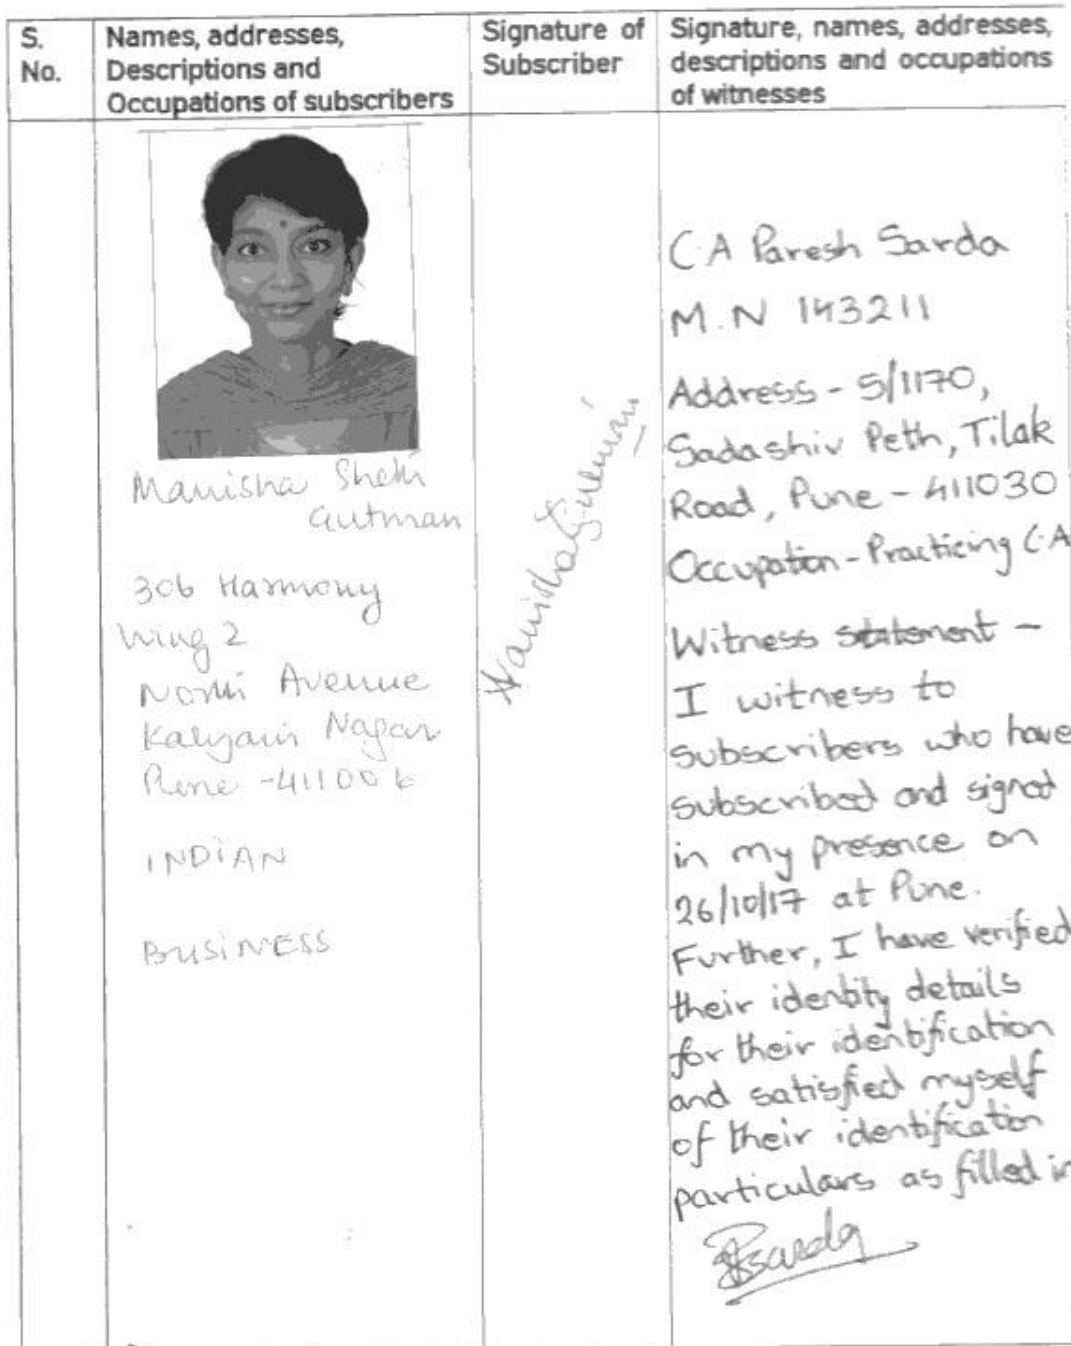 S.
No.
Names, addresses,
Descriptions and
Occupations of subscribers
Signature of
Subscriber
Signature, names, addresses,
descriptions and occupations
of witnesses
Manisha Sheth
Gutman
306 Harmony
Wing 2
North Avenue
Kalyani Nagar
Pune - 411006
INDIAN
BUSINESS
Manisha Gutman
C.A Paresh Sarda
M.N 143211
Address - 5/1170,
Sadashiv Peth, Tilak
Road, Pune - 411030
Occupation - Practicing C.A
Witness statement -
I witness to
subscribers who have
subscribed and signed
in my presence on
26/10/17 at Pune.
Further, I have verified
their identity details
for their identification
and satisfied myself
of their identification
particulars as filled in
PSarda